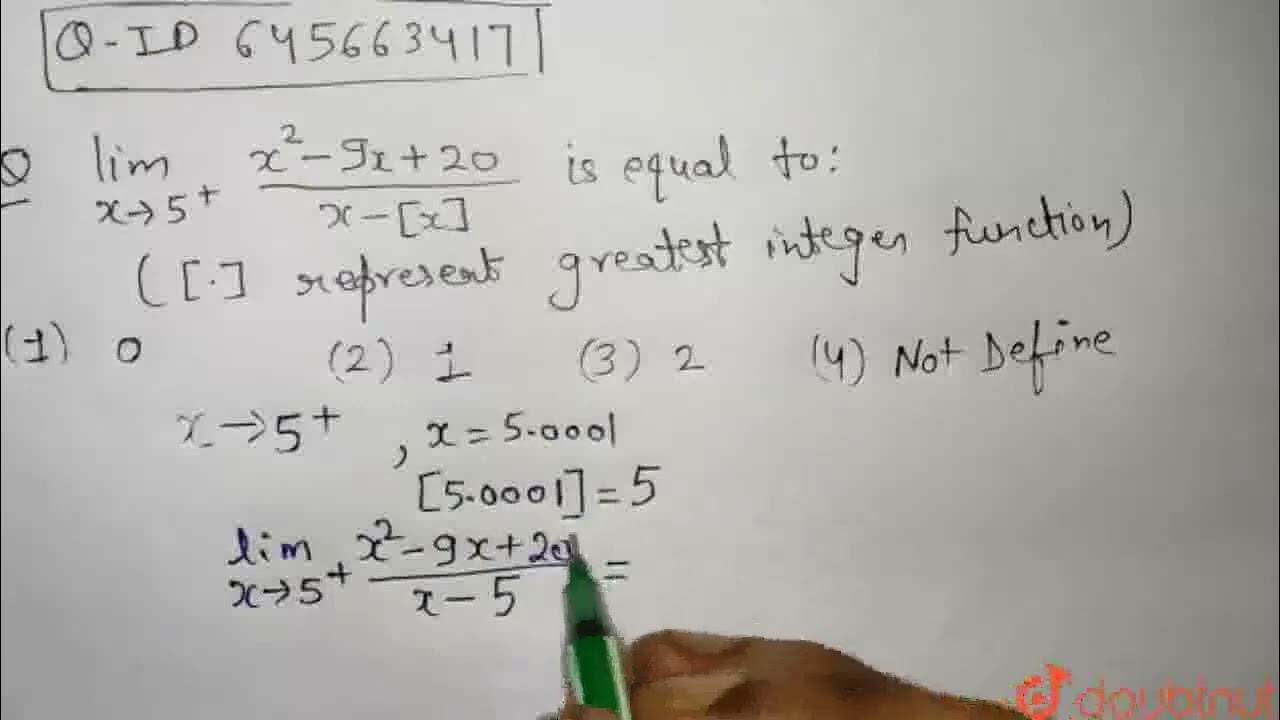 Q-ID 645663417
Q lim x→5⁺ (x²-9x+20)/(x-[x]) is equal to:
([.] represent greatest integer function)
(1) 0 (2) 1 (3) 2 (4) Not Define
x→5⁺, x=5.0001
[5.0001]=5
lim x→5⁺ (x²-9x+20)/(x-5) =
doubtnut